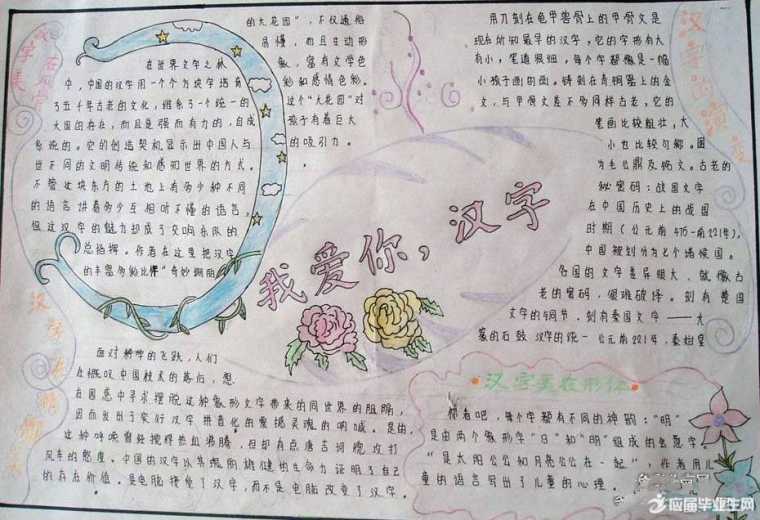 在世界文字之林
中，中国的汉字用一个个方块字培育
了五千年古老的文化，维系了一个统一的
大国的存在，而且是强而有力的，自成
系统的。它的创造契机显示出中国人与
世不同的文明传统和感知世界的方式。
不管这块东方的土地上有多少种不同
的语言讲着多少互相听不懂的语言，
但这汉字的魅力却成了交响乐队的
总指挥。作者在这里把汉字
的丰富多彩比作"奇妙绚丽
的大花园"，不仅通俗
易懂，而且生动形
象，富有文学色
彩和感情色彩。
这个"大花园"对
孩子有着巨大
的吸引力。
用刀刻在龟甲兽骨上的甲骨文是
现在所知最早的汉字，它的字形有大
有小，笔道很细，每个字都像是一幅
小孩子画的画。铸刻在青铜器上的金
文，与甲骨文差不多同样古老，它的
笔画比较粗壮，大
小也比较匀称。图
为毛公鼎及铭文。古老的
秘密码：战国文字
在中国历史上的战国
时期（公元前475-前221年），
中国被划分为七个诸侯国。
各国的文字差异很大，就像古
老的密码，很难破译。刻有楚国
文字的铜节，刻有秦国文字——大
篆的石鼓 汉字的统一 公元前221年，秦始皇
汉字的演变
我爱你，汉字
面对科学的飞跃，人们
在慨叹中国技术的落后，想
在困惑中寻求摆脱这种象形文字带来的同世界的阻隔，
因而发出了实行汉字拼音化的震撼灵魂的呐喊。是的，
这种呼唤曾经搅得热血沸腾，但却有点唐吉诃德攻打
风车的态度。中国的汉字以其瑰丽雄健的生命力证明了自己
的存在价值。是电脑接受了汉字，而不是电脑改变了汉字。
汉字美在形体
你看吧，每个字都有不同的神韵："明"
是由两个象形字"日"和"明"组成的会意字。
"是太阳公公和月亮公公在一起"，作者用儿
童的语言写出了儿童的心理。
应届毕业生网